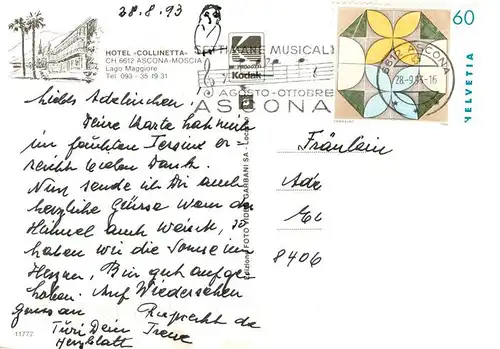 28.8.93
HOTEL «COLLINETTA»
CH 6612 ASCONA-MOSCIA
Lago Maggiore
Tel. 093 - 35 19 31
SETTIMANE MUSICALI
Kodak
AGOSTO-OTTOBRE
ASCONA
6612 ASCONA
28.-9.93-16
60
HELVETIA
liebes Adelinchen,
Deine Karte hat mich
im
erreicht vielen Dank.
Nun sende ich Dir auch
herzliche Grüsse wenn der
Himmel auch weint, so
haben wir die Sonne im
Herzen, Bin gut aufge-
hoben. Auf Wiedersehen
Ruprecht
Dein Irene
Herzblatt
Fräulein
Ade
8406
Edizione FOTO VIDEO GARBANI SA - Locarno
11772